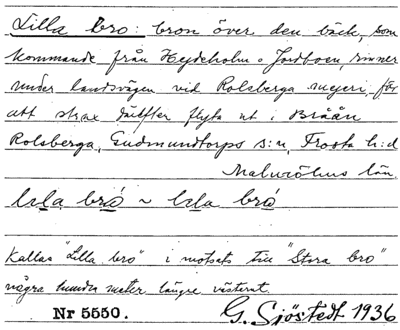 Lilla bro: bron över den bäck, som
kommande från Heydeholm o Jordboen, rinner
under landsvägen vid Rolsberga mejeri, för
att strax därefter flyta ut i Bråån
Rolsberga, Gudmundtorps s:n, Frosta h:d
Malmöhus län.
Kallas "Lilla bro" i motsats till "Stora bro"
några hundra meter längre västerut.
Nr 5550. G. Sjöstedt 1936